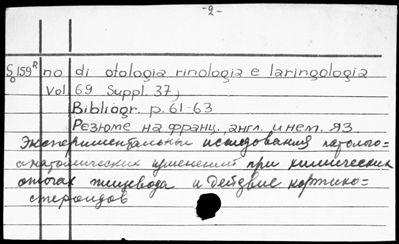 -2-
S0159R no di otologia rinologia e laringologia
Vol 69 Suppl. 37,
Bibliogr. p. 61-63
Резюме на франц. англ. и нем. яз.
Экспериментальны исследования патолого=
анатомических изменений при химических
ожогах пищевода и действие кортико=
стероидов